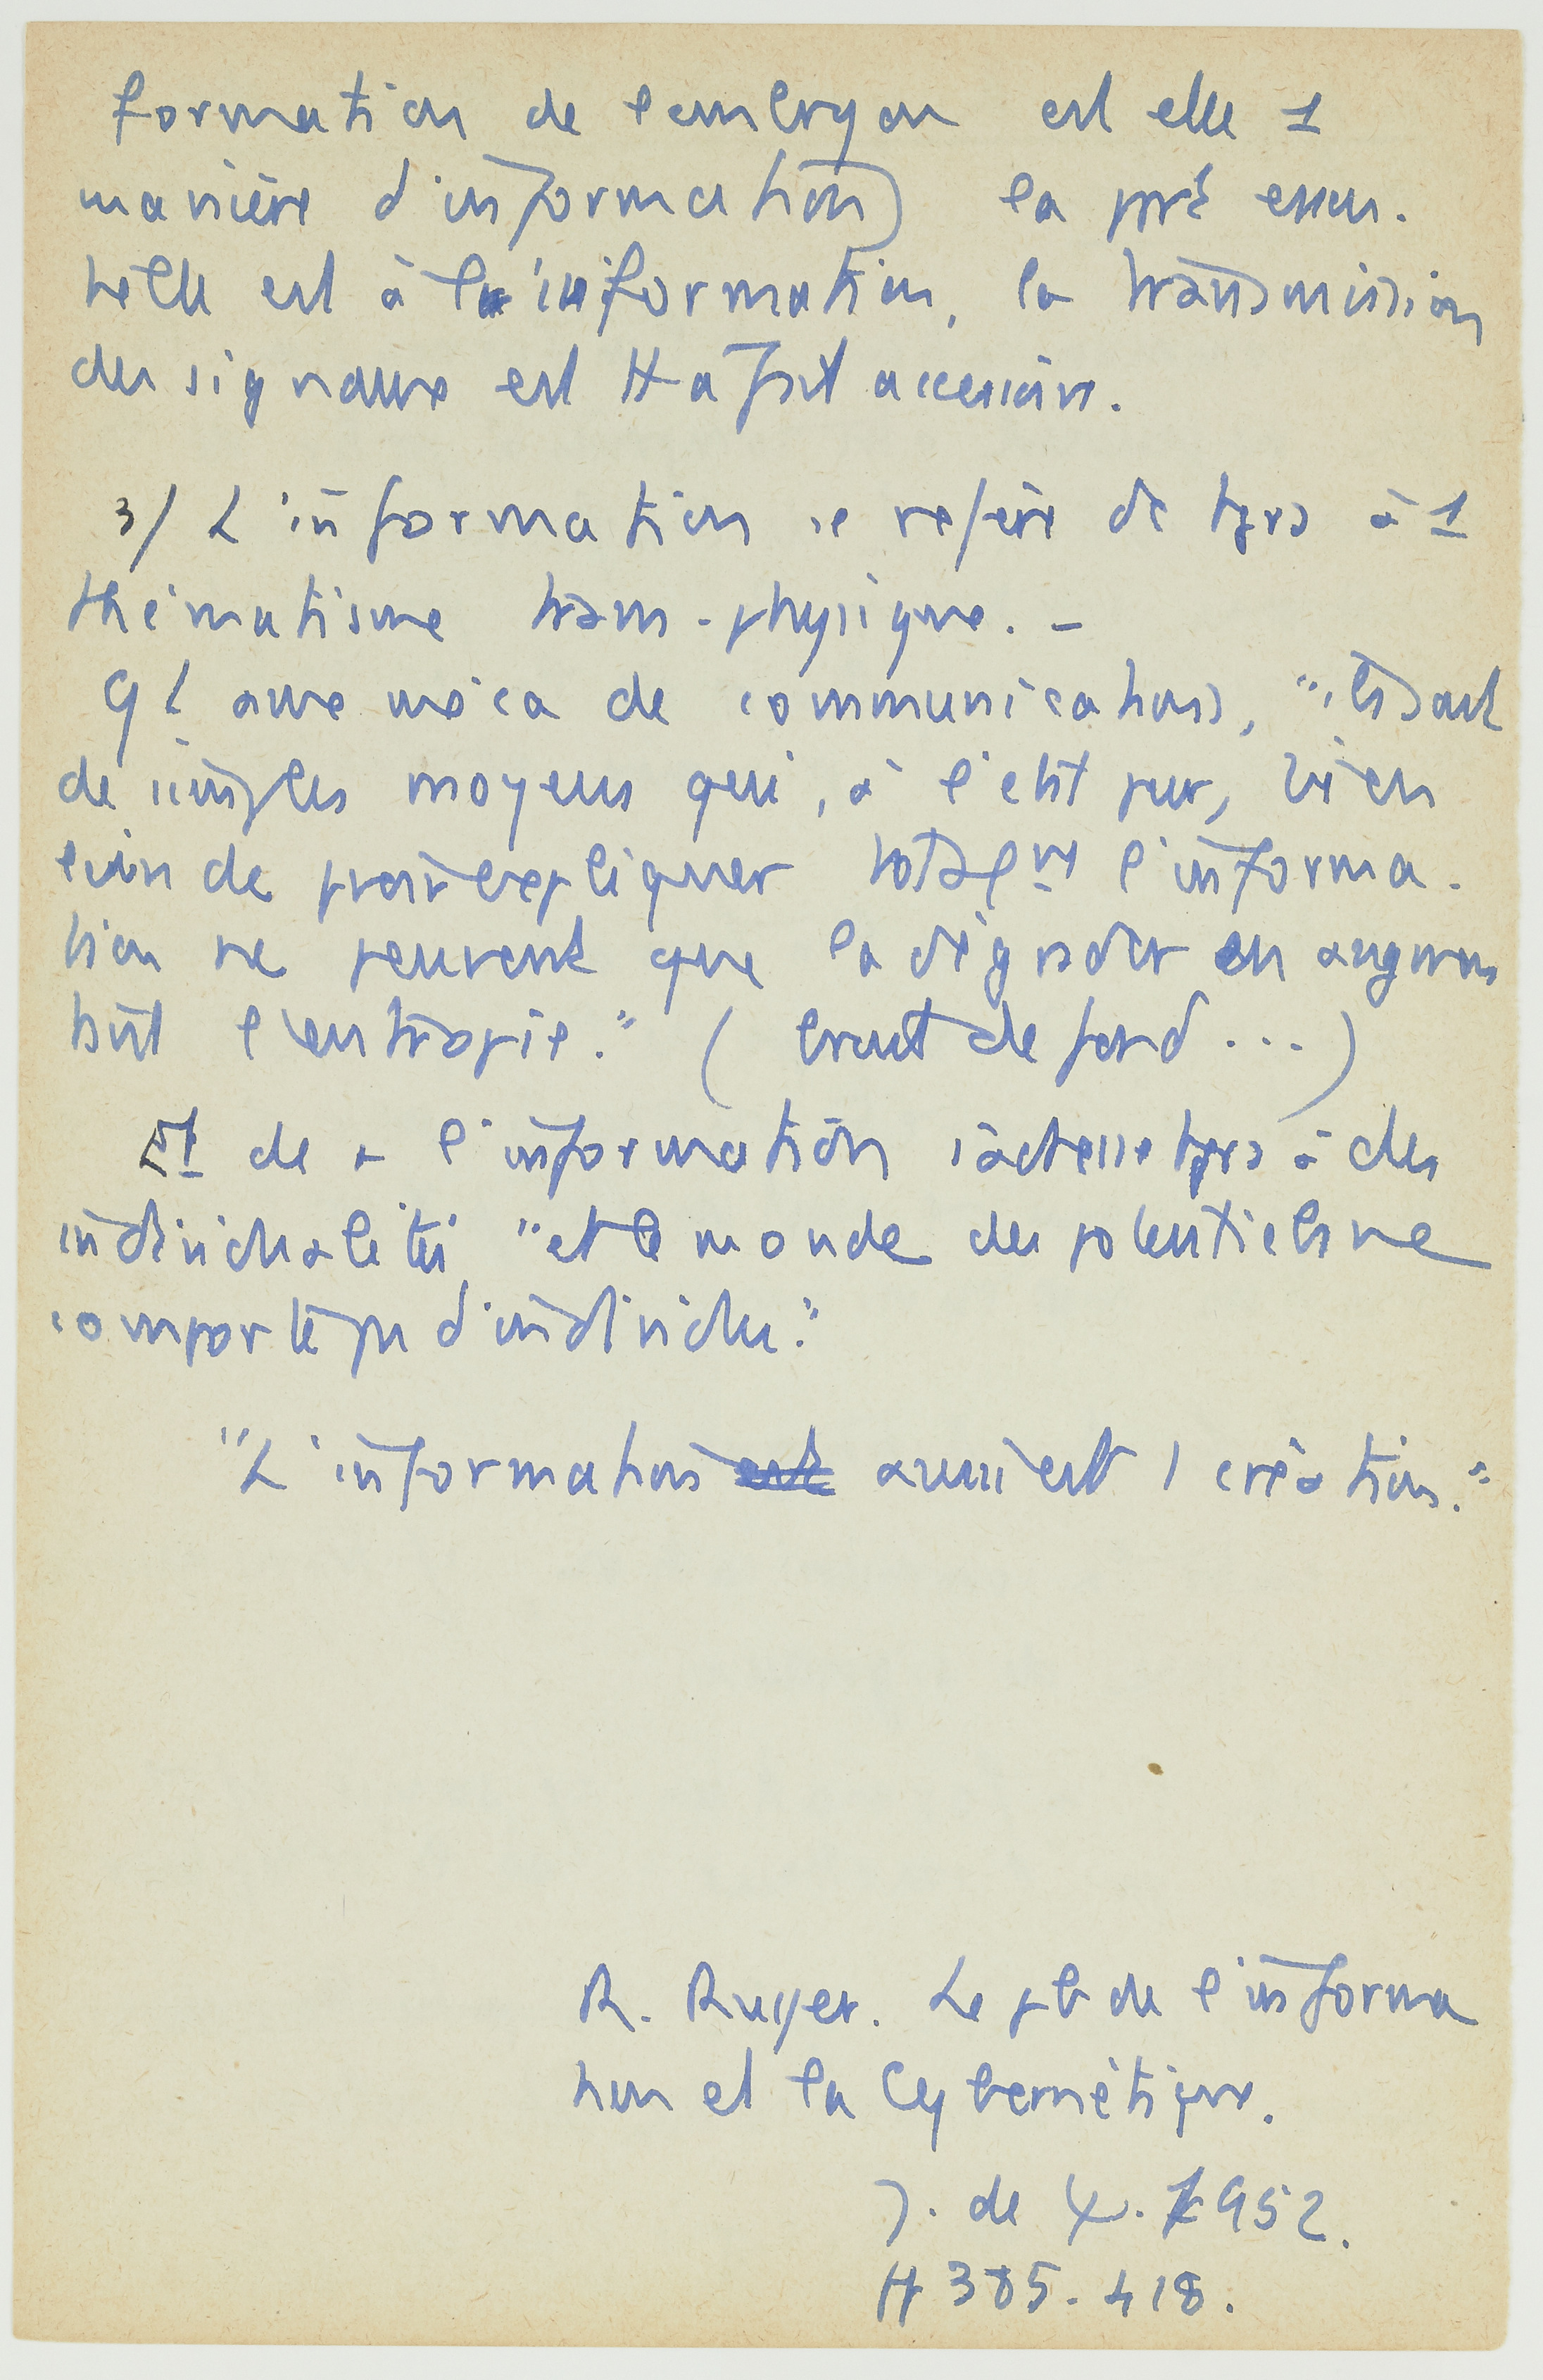 formation de l'embryon est elle 1
manière d'information) la ppté essen-
tielle est à l'information, la transmission
des signaux est tt a fait accessoire.
3/ L'information se refère de tjrs à 1
thématisme trans-physique. -
Qt aux méca de communications, "ils sont
de simples moyens qui, à l'état pur, bien
loin de pvoir expliquer totalemt l'informa-
tion ne peuvent que la dégrader en augmen
tant l'entropie." (bruit de fond...)
de + l'information s'adresse tjrs à des
individualités, "et le monde des potentiels ne
comporte pas d'individu."
"L'information est aussi est 1 création."
R. Ruyer. Le pb de l'informa
tion et la Cybernétique.
J. de Ψ. 1952.
pp 385-418.